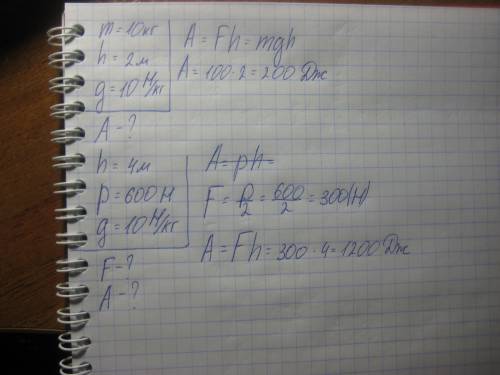 m = 10 кг
h = 2 м
g = 10 Н/кг
A - ?
A = Fh = mgh
A = 100 · 2 = 200 Дж
h = 4 м
P = 600 Н
g = 10 Н/кг
F - ?
A - ?
A = ph =
F = P/2 = 600/2 = 300 (Н)
A = Fh = 300 · 4 = 1200 Дж